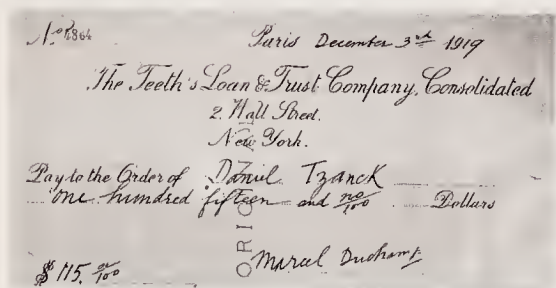 No 4864
Paris December 3rd 1919
The Teeth's Loan & Trust Company, Consolidated
2 Wall Street.
New York.
Pay to the Order of Daniel Tzanck
one hundred fifteen and no/100 Dollars
$ 115. no/100
Marcel Duchamp